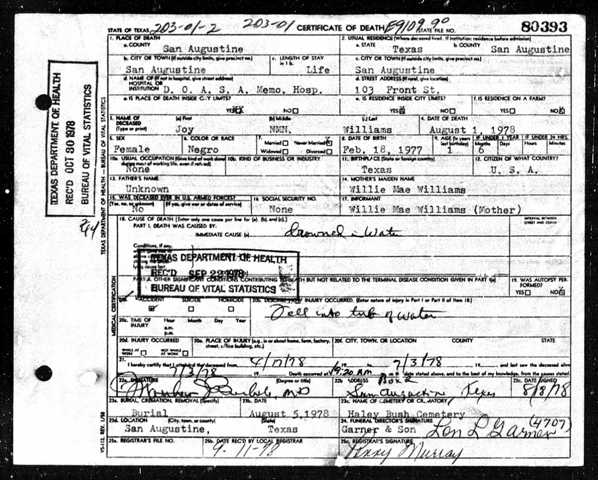 203-01-2 203-01 E9109.9°
STATE OF TEXAS CERTIFICATE OF DEATH STATE FILE NO. 80393
1. PLACE OF DEATH 2. USUAL RESIDENCE (Where deceased lived. If institution: residence before admission)
a. COUNTY San Augustine a. STATE Texas b. COUNTY San Augustine
b. CITY OR TOWN (If outside city limits, give precinct no.) c. LENGTH OF STAY c. CITY OR TOWN (If outside city limits, give precinct no.)
San Augustine Life San Augustine
d. NAME OF (If not in hospital, give street address) d. STREET ADDRESS (If rural, give location)
HOSPITAL OR
INSTITUTION D. O. A. S. A. Memo. Hosp. 103 Front St.
e. IS PLACE OF DEATH INSIDE CITY LIMITS? e. IS RESIDENCE INSIDE CITY LIMITS? f. IS RESIDENCE ON A FARM?
YES NO YES NO YES NO
3. NAME OF DECEASED (a) First (b) Middle (c) Last 4. DATE OF DEATH
(Type or print) Joy NMN. Williams August 1, 1978
5. SEX 6. COLOR OR RACE 7. Married Never Married 8. DATE OF BIRTH 9. AGE IF UNDER 1 YEAR IF UNDER 24 HRS.
Female Negro Widowed Divorced Feb. 18, 1977 1 6
10a. USUAL OCCUPATION (Give kind of work done 10b. KIND OF BUSINESS OR INDUSTRY 11. BIRTHPLACE (State or foreign country) 12. CITIZEN OF WHAT COUNTRY?
during most of working life, even if retired)
None Texas U. S. A.
13. FATHER'S NAME 14. MOTHER'S MAIDEN NAME
Unknown Willie Mae Williams
15. WAS DECEASED EVER IN U.S. ARMED FORCES? 16. SOCIAL SECURITY NO. 17. INFORMANT
(Yes, no, or unknown) (If yes, give war or dates of service)
No None Willie Mae Williams (Mother)
18. CAUSE OF DEATH (Enter only one cause per line for (a), (b), and (c).) INTERVAL BETWEEN
PART I. DEATH WAS CAUSED BY: ONSET AND DEATH
IMMEDIATE CAUSE (a) drowned in water
Conditions, if any,
TEXAS DEPARTMENT OF HEALTH
REC'D SEP 22 1978
BUREAU OF VITAL STATISTICS
PART II. OTHER SIGNIFICANT CONDITIONS CONTRIBUTING TO DEATH BUT NOT RELATED TO THE TERMINAL DISEASE CONDITION GIVEN IN PART I (a) 19. WAS AUTOPSY PERFORMED?
YES NO
20a. ACCIDENT SUICIDE HOMICIDE 20b. DESCRIBE HOW INJURY OCCURRED. (Enter nature of injury in Part I or Part II of item 18.)
Fell into tub of water
20c. TIME OF INJURY Hour Month Day Year
a.m.
p.m.
20d. INJURY OCCURRED 20e. PLACE OF INJURY (e.g., in or about home, farm, factory, street, office building, etc.) 20f. CITY, TOWN, OR LOCATION COUNTY STATE
21. I hereby certify that I attended the deceased from 4/17/78 to 7/3/78 and last saw the deceased alive
on 7/3/78 Death occurred at 9:20 A.m. on the date stated above, and to the best of my knowledge, from the causes stated.
22a. SIGNATURE (Degree or title) 22b. ADDRESS Box 2 22c. DATE SIGNED
MD San Augustine, Texas 8/8/78
23a. BURIAL, CREMATION, REMOVAL (Specify) 23b. DATE 23c. NAME OF CEMETERY OR CREMATORY
Burial August 5, 1978 Haley Bush Cemetery
23d. LOCATION (City, town, or county) (State) 24. FUNERAL DIRECTOR'S SIGNATURE (4707)
San Augustine, Texas Garner & Son Lon L Garner
25a. REGISTRAR'S FILE NO. 25b. DATE REC'D BY LOCAL REGISTRAR 25c. REGISTRAR'S SIGNATURE
9-11-78 Perry Murray
TEXAS DEPARTMENT OF HEALTH
REC'D OCT 30 1978
BUREAU OF VITAL STATISTICS
TEXAS DEPARTMENT OF HEALTH — BUREAU OF VITAL STATISTICS
MEDICAL CERTIFICATION
VS-112, REV. 1/58